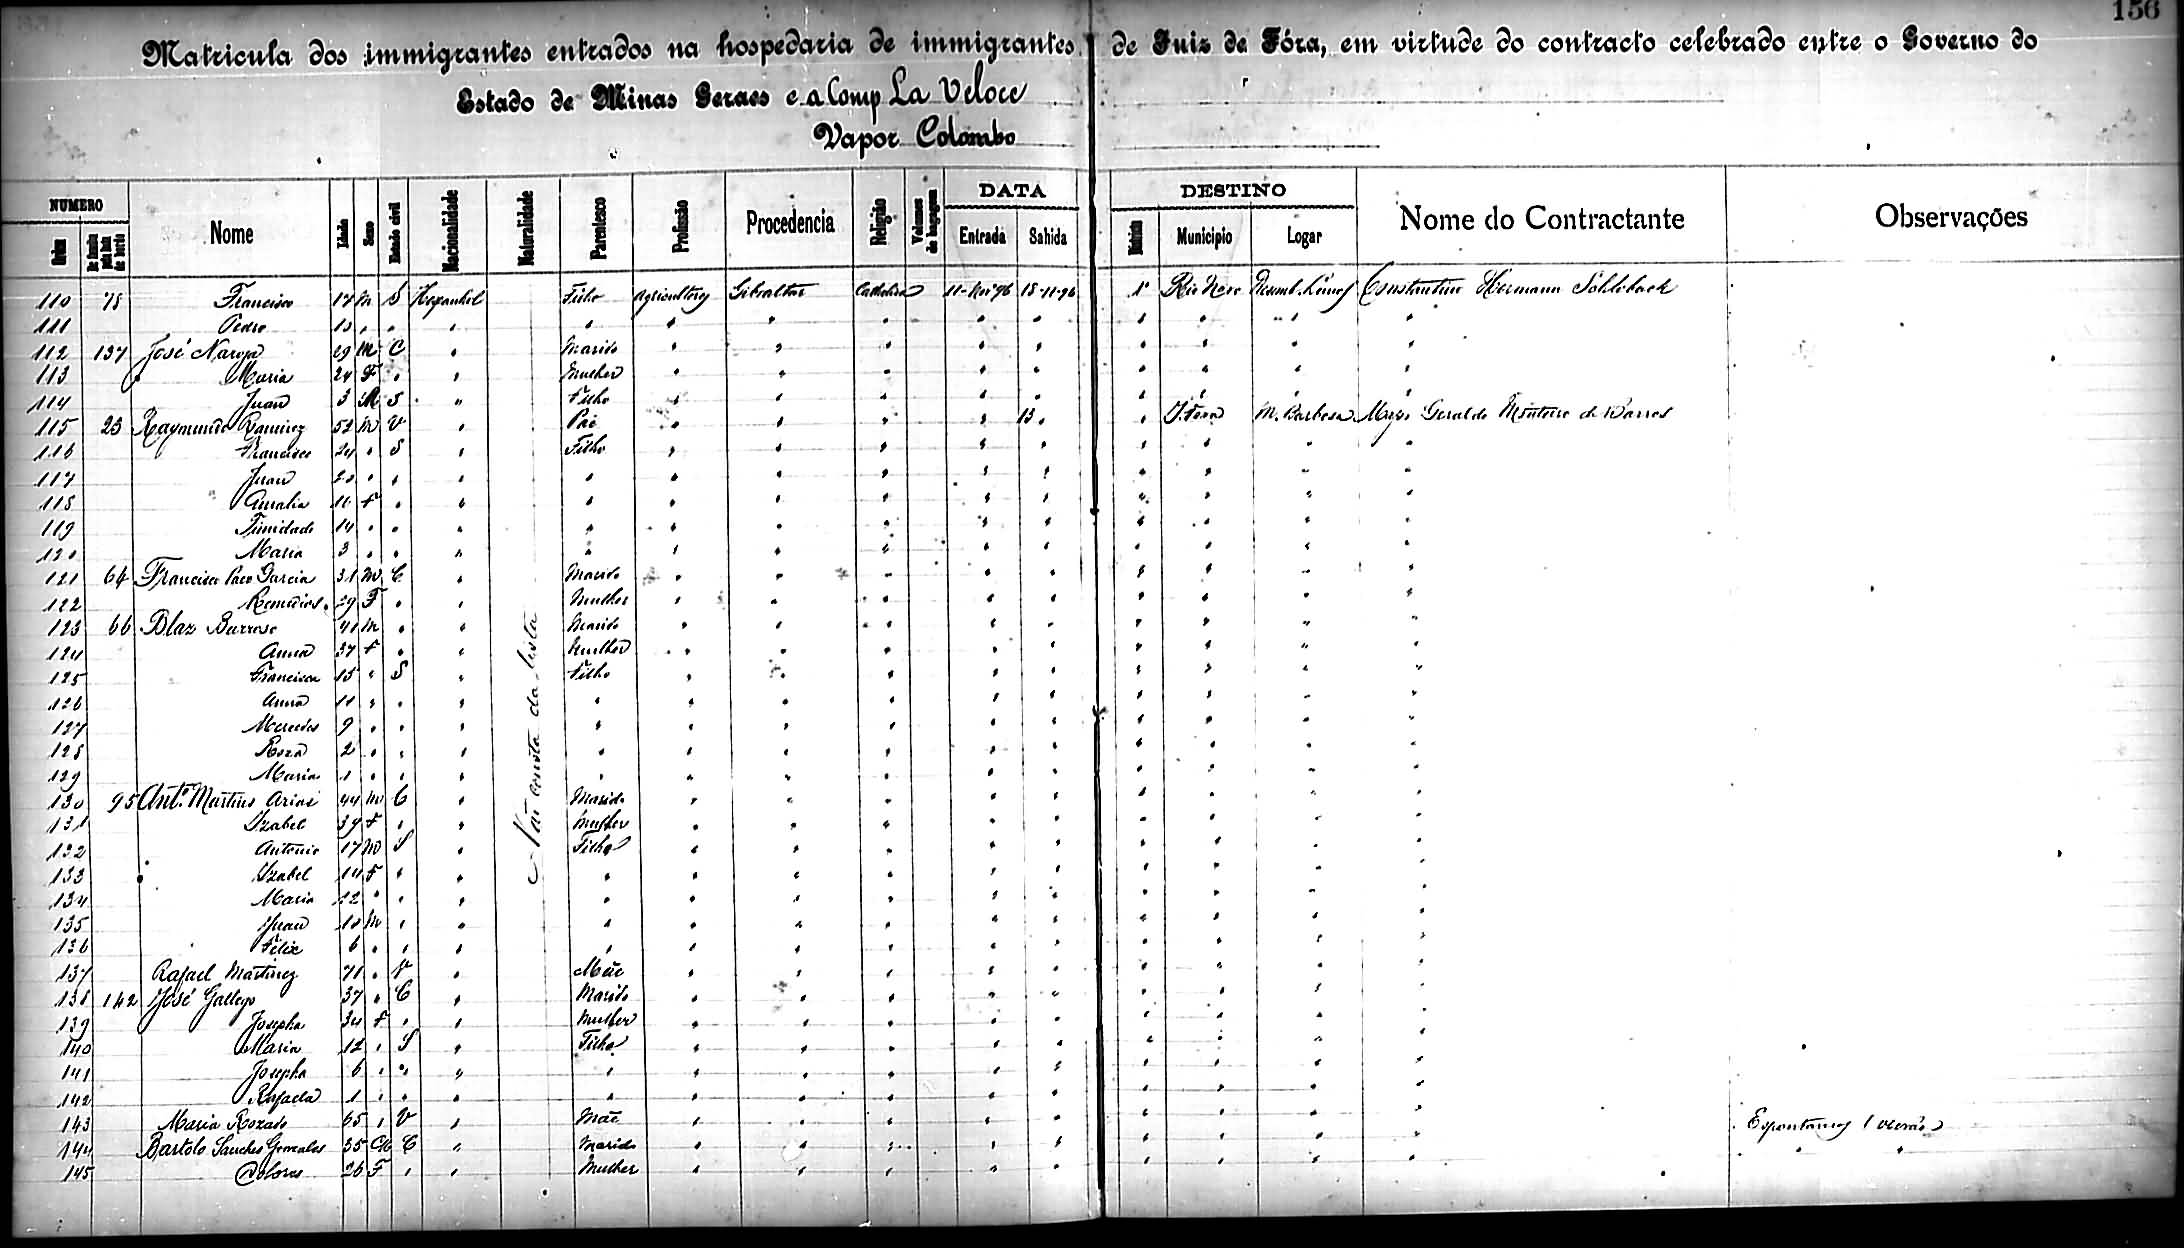 156
Matricula dos immigrantes entrados na hospedaria de immigrantes de Juiz de Fóra, em virtude do contracto celebrado entre o Governo do
Estado de Minas Geraes e a Comp La Veloce
Vapor Colombo
NUMERO Nome Idade Sexo Estado civil Nacionalidade Naturalidade Parentesco Profissão Procedencia Religião Volumes de bagagem DATA DESTINO Nome do Contractante Observações
Ordem Entrada Sahida Districto Municipio Logar
110 78 Francisco 17 M S Hespanhol Filho Agricultor Gibraltar Catholica 11-Nov 96 18-11-96 1º Rio Novo Constantino Hermann Schlobach
111 Pedro 10
112 137 José 29 M C Marido
113 Maria 24 F Mulher
114 Juan 3 M S Filho
115 23 Raymundo Ramirez 52 M V Pai 13 J. Fora M. Barbosa Major Geraldo Monteiro de Barros
116 Francisco 24 S Filho
117 Juan 20
118 Amalia 16 F
119 Trinidade 14
120 Maria 3
121 64 Francisco Paco Garcia 31 M C Marido
122 Remedios 29 F Mulher
123 66 Blaz Barroso 41 M Marido
124 Anna 37 F Mulher
125 Francisca 15 S Filho
126 Anna 11
127 Mercedes 9
128 Roza 2
129 Maria 1
Não consta da lista
130 95 Antº Martins Arias 44 M C Marido
131 Izabel 39 F Mulher
132 Antonio 17 M S Filho
133 Izabel 14 F
134 Maria 12
135 Juan 10 M
136 Felix 6
137 Rafael Martinez 71 V Mãe
138 142 José Gallego 37 C Marido
139 Josepha 34 F Mulher
140 Maria 12 S Filha
141 Josepha 6
142 Rafaela 1
143 Maria Rozado 65 V Mãe
144 Bartolo Sanches Gonzales 35 M C Marido
145 Dolores 26 F Mulher